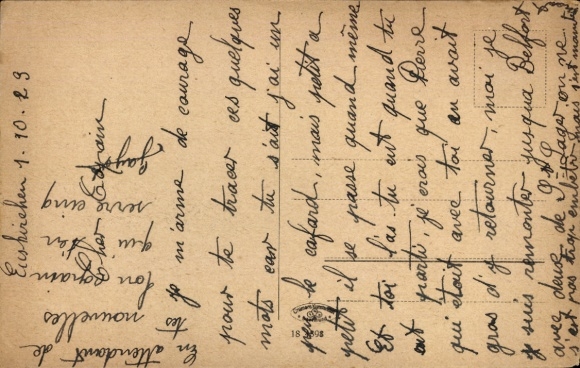 Euskirchen 1.10.23
je m'arme de courage
pour te tracer ces quelques
mots car tu s'ait j'ai un
peu le cafard, mais petit a
petit il se passe quand même
Et toi l'as tu eut quand tu
est parti, je crois que Pierre
qui était avec toi en avait
gros d'y retourner, moi je
suis remonter jusqua Belfort
avec deux de on ne
s'est pas trop embêter
En attendant de
tes nouvelles
ton copain
qui t'en
serre cinq